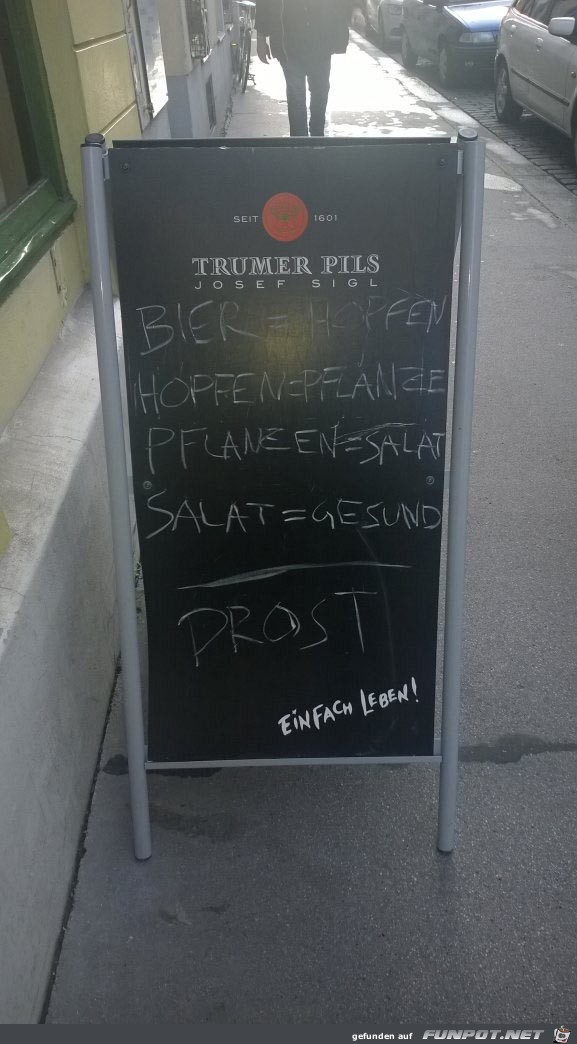 SEIT 1601
TRUMER PILS
JOSEF SIGL
BIER = HOPFEN
HOPFEN=PFLANZE
PFLANZEN=SALAT
SALAT=GESUND
PROST
EINFACH LEBEN!
gefunden auf FUNPOT.NET